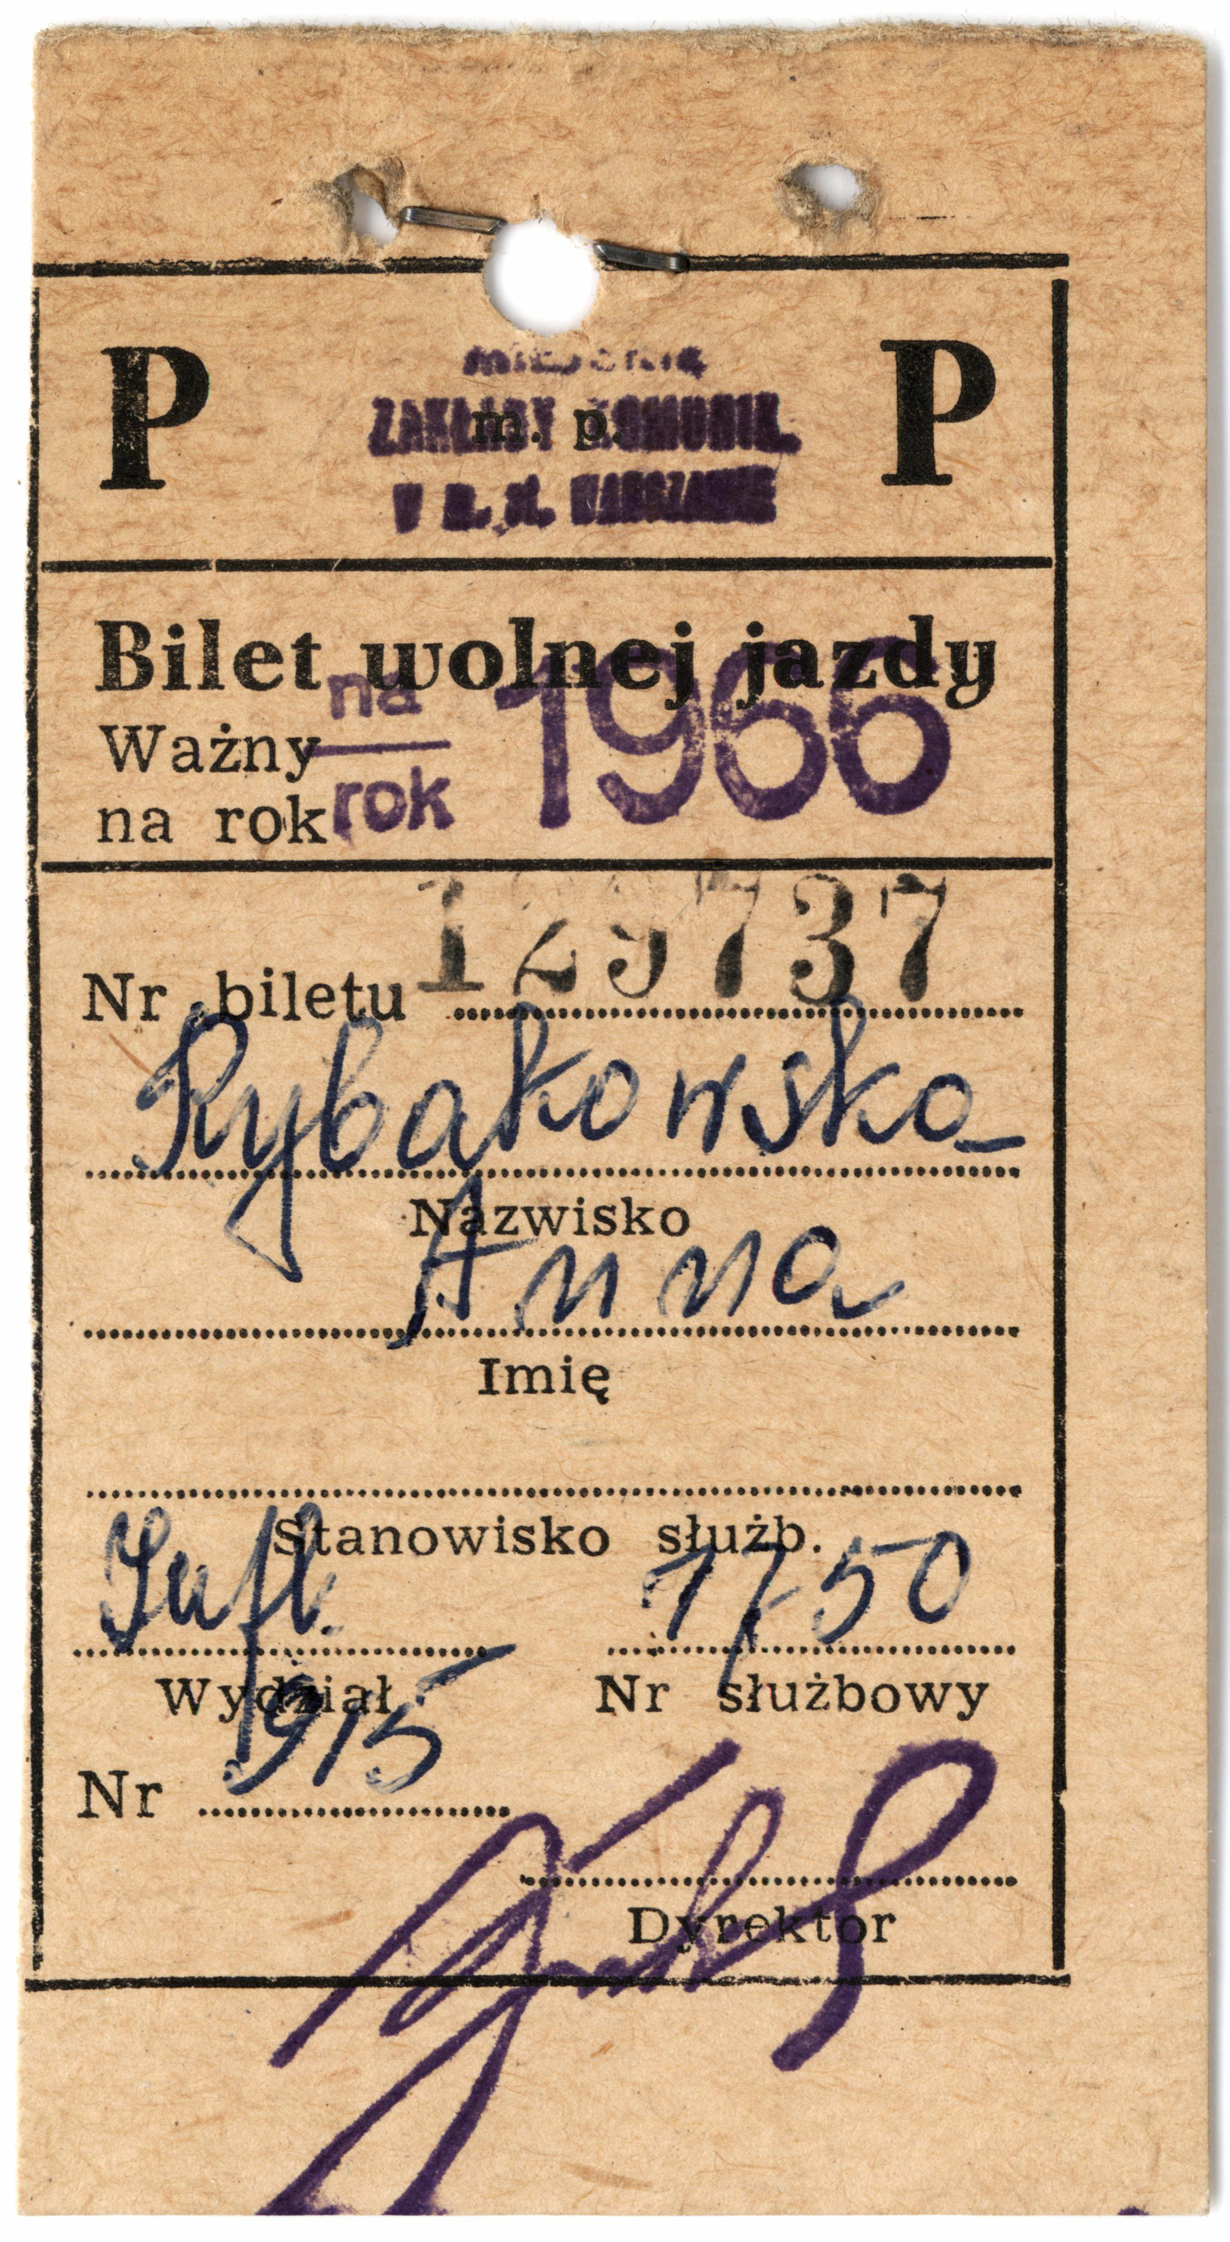 P P
ZAKŁADY KOMUNIK.
m. p.
W M. ST. WARSZAWIE
Bilet wolnej jazdy
na
rok 1966
Ważny
na rok
Nr biletu 129737
Rybakowska
Nazwisko
Anna
Imię
Stanowisko służb.
1750
Wydział Nr służbowy
Nr 1915
Dyrektor